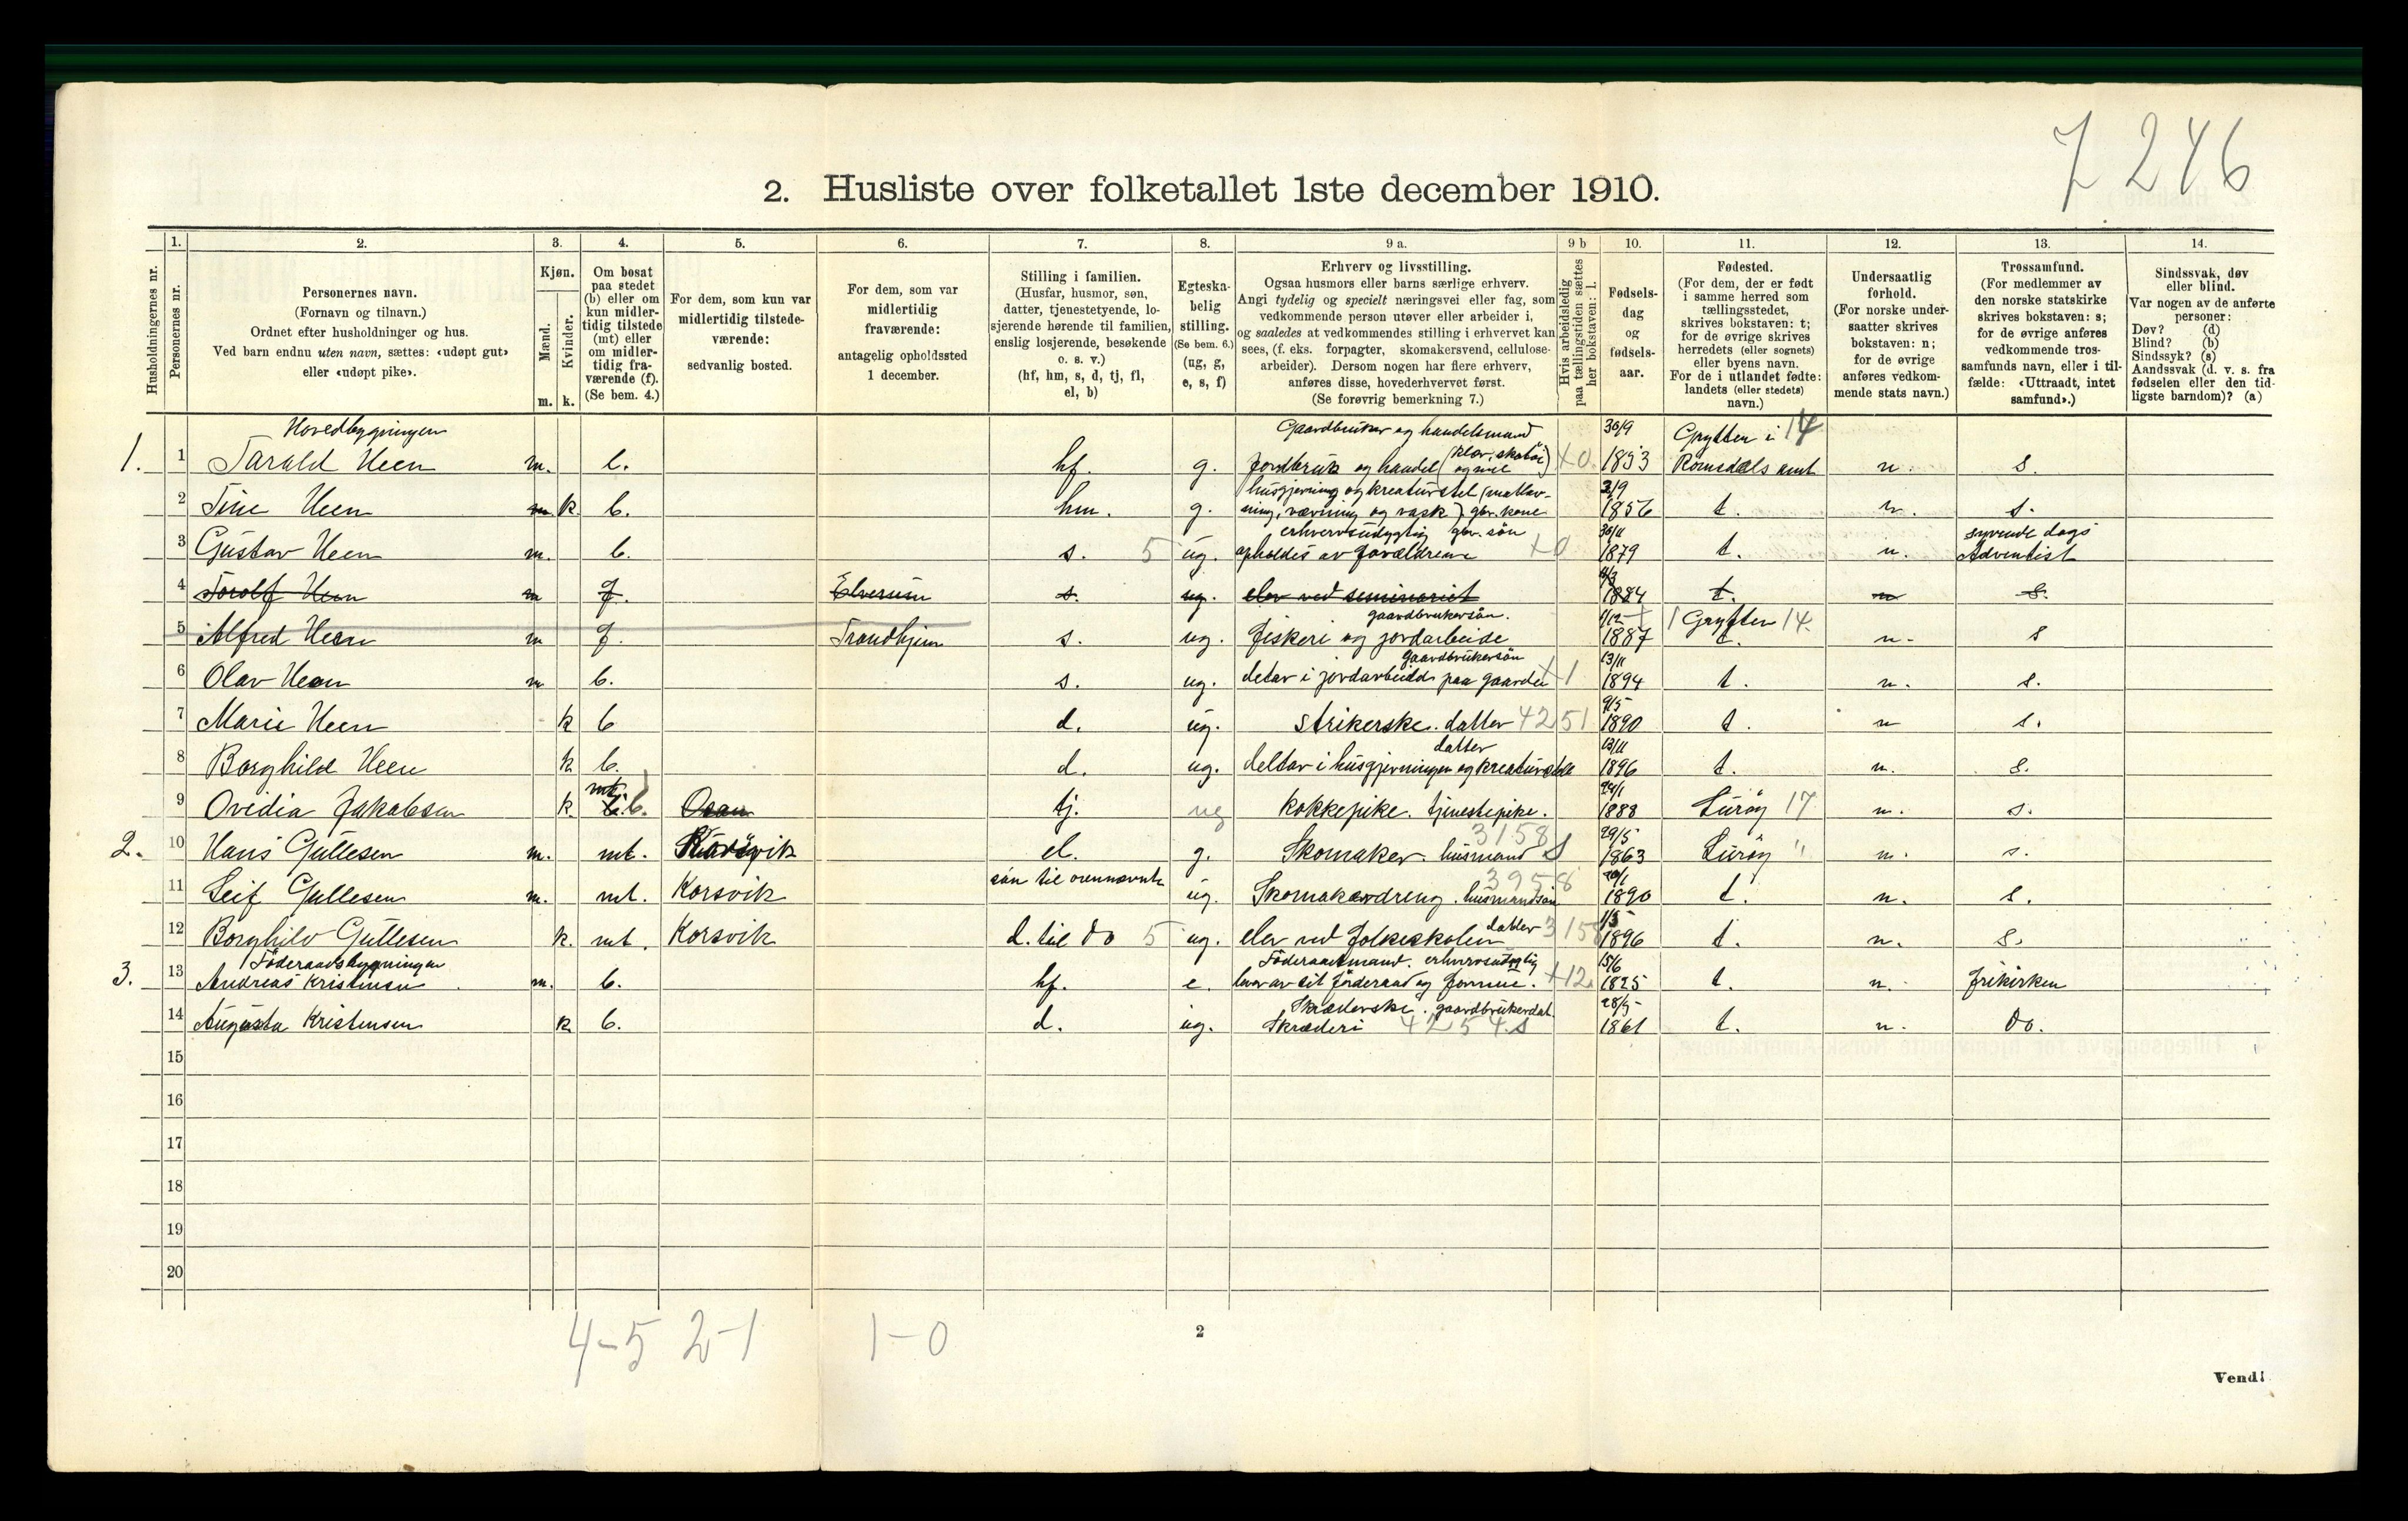 7 246
2. Husliste over folketallet 1ste december 1910.
1. 2. 3. 4. 5. 6. 7. 8. 9 a. 9 b 10. 11. 12. 13. 14.
Husholdningernes nr.
Personernes nr.
Personernes navn.
(Fornavn og tilnavn.)
Ordnet efter husholdninger og hus.
Ved barn endnu uten navn, sættes: «udøpt gut»
eller «udøpt pike».
Kjøn.
Mænd.
Kvinder.
m. k.
Om bosat
paa stedet
(b) eller om
kun midler-
tidig tilstede
(mt) eller
om midler-
tidig fra-
værende (f).
(Se bem. 4.)
For dem, som kun var
midlertidig tilstede-
værende:
sedvanlig bosted.
For dem, som var
midlertidig
fraværende:
antagelig opholdssted
1 december.
Stilling i familien.
(Husfar, husmor, søn,
datter, tjenestetyende, lo-
sjerende hørende til familien,
enslig losjerende, besøkende
o. s. v.)
(hf, hm, s, d, tj, fl,
el, b)
Egteska-
belig
stilling.
(Se bem. 6.)
(ug, g,
e, s, f)
Erhverv og livsstilling.
Ogsaa husmors eller barns særlige erhverv.
Angi tydelig og specielt næringsvei eller fag, som
vedkommende person utøver eller arbeider i,
og saaledes at vedkommendes stilling i erhvervet kan
sees, (f. eks. forpagter, skomakersvend, cellulose-
arbeider). Dersom nogen har flere erhverv,
anføres disse, hovederhvervet først.
(Se forøvrig bemerkning 7.)
Hvis arbeidsledig
paa tællingstiden sættes
her bokstaven: l.
Fødsels-
dag
og
fødsels-
aar.
Fødested.
(For dem, der er født
i samme herred som
tællingsstedet,
skrives bokstaven: t;
for de øvrige skrives
herredets (eller sognets)
eller byens navn.
For de i utlandet fødte:
landets (eller stedets)
navn.)
Undersaatlig
forhold.
(For norske under-
saatter skrives
bokstaven: n;
for de øvrige
anføres vedkom-
mende stats navn.)
Trossamfund.
(For medlemmer av
den norske statskirke
skrives bokstaven: s;
for de øvrige anføres
vedkommende tros-
samfunds navn, eller i til-
fælde: «Uttraadt, intet
samfund».)
Sindssvak, døv
eller blind.
Var nogen av de anførte
personer:
Døv? (d)
Blind? (b)
Sindssyk? (s)
Aandssvak (d. v. s. fra
fødselen eller den tid-
ligste barndom)? (a)
Hovedbygningen Gaardbruker og handelsmand 30/9 Grytten i 14
1. 1 Tarald Heen m. b. hf. g. Jordbruk og handel (klær, skotöi og mel) +0 1853 Romsdals amt n. s.
husgjerning og kreaturstel (matlav- 2/9
2 Tine Heen k b. hm. g. ning, vævning og vask) gbr. kone 1856 t. n. s.
erhvervsudygtig gbr. sön 30/11 syvende dags
3 Gustav Heen m. b. s. 5 ug. opholdes av forældrene +0 1879 t. n. Adventist
4 Torolf Heen m f. Elverum s. ug. elev ved seminariet 4/3 1884 t. n s.
gaardbrukersön. 1/12
5 Alfred Heen m f. Trondhjem s. ug. fiskeri og jordarbeide 1887 Grytten 14 t. n. s
gaardbrukersön 13/11
6 Olav Heen m b. s. ug. deltar i jordarbeide paa gaarden +1 1894 t. n. s.
7 Marie Heen k b d. ug. strikerske. datter 42 51 9/5 1890 t. n s.
datter 13/11
8 Borghild Heen k b. d. ug. deltar i husgjerningen og kreaturstel 1896 t. n. s.
9 Ovidia Jakobsen k. mt b. Osan tj. ug kokkepike. tjenestepike. 24/1 1888 Luröy 17 n. s.
2. 10 Hans Gullesen m. mt. Korsvik el. g. Skomaker. husmand 3158 S 29/5 1863 Luröy " n. s.
11 Leif Gullesen m. mt. Korsvik sön til ovennævnte ug. Skomakerdreng. husmandsön 3958 20/1 1890 t. n. s.
12 Borghild Gullesen k. mt. Korsvik d. til do 5 ug. elev ved folkeskolen datter 3158 1/5 1896 t. n. s.
Föderaadsbygningen Föderaadmand. erhvervsudygtig 15/6
3. 13 Andreas Kristensen m. b. hf. e. lever av sit föderaad og formue. +12 1825 t. n. frikirken
Skrædderske. gaardbrukerdat. 28/5
14 Augusta Kristensen k b. d. ug. Skræderi 4254 S 1861 t. n. do.
15
16
17
18
19
20
4-5 2-1 1-0
2
Vend!